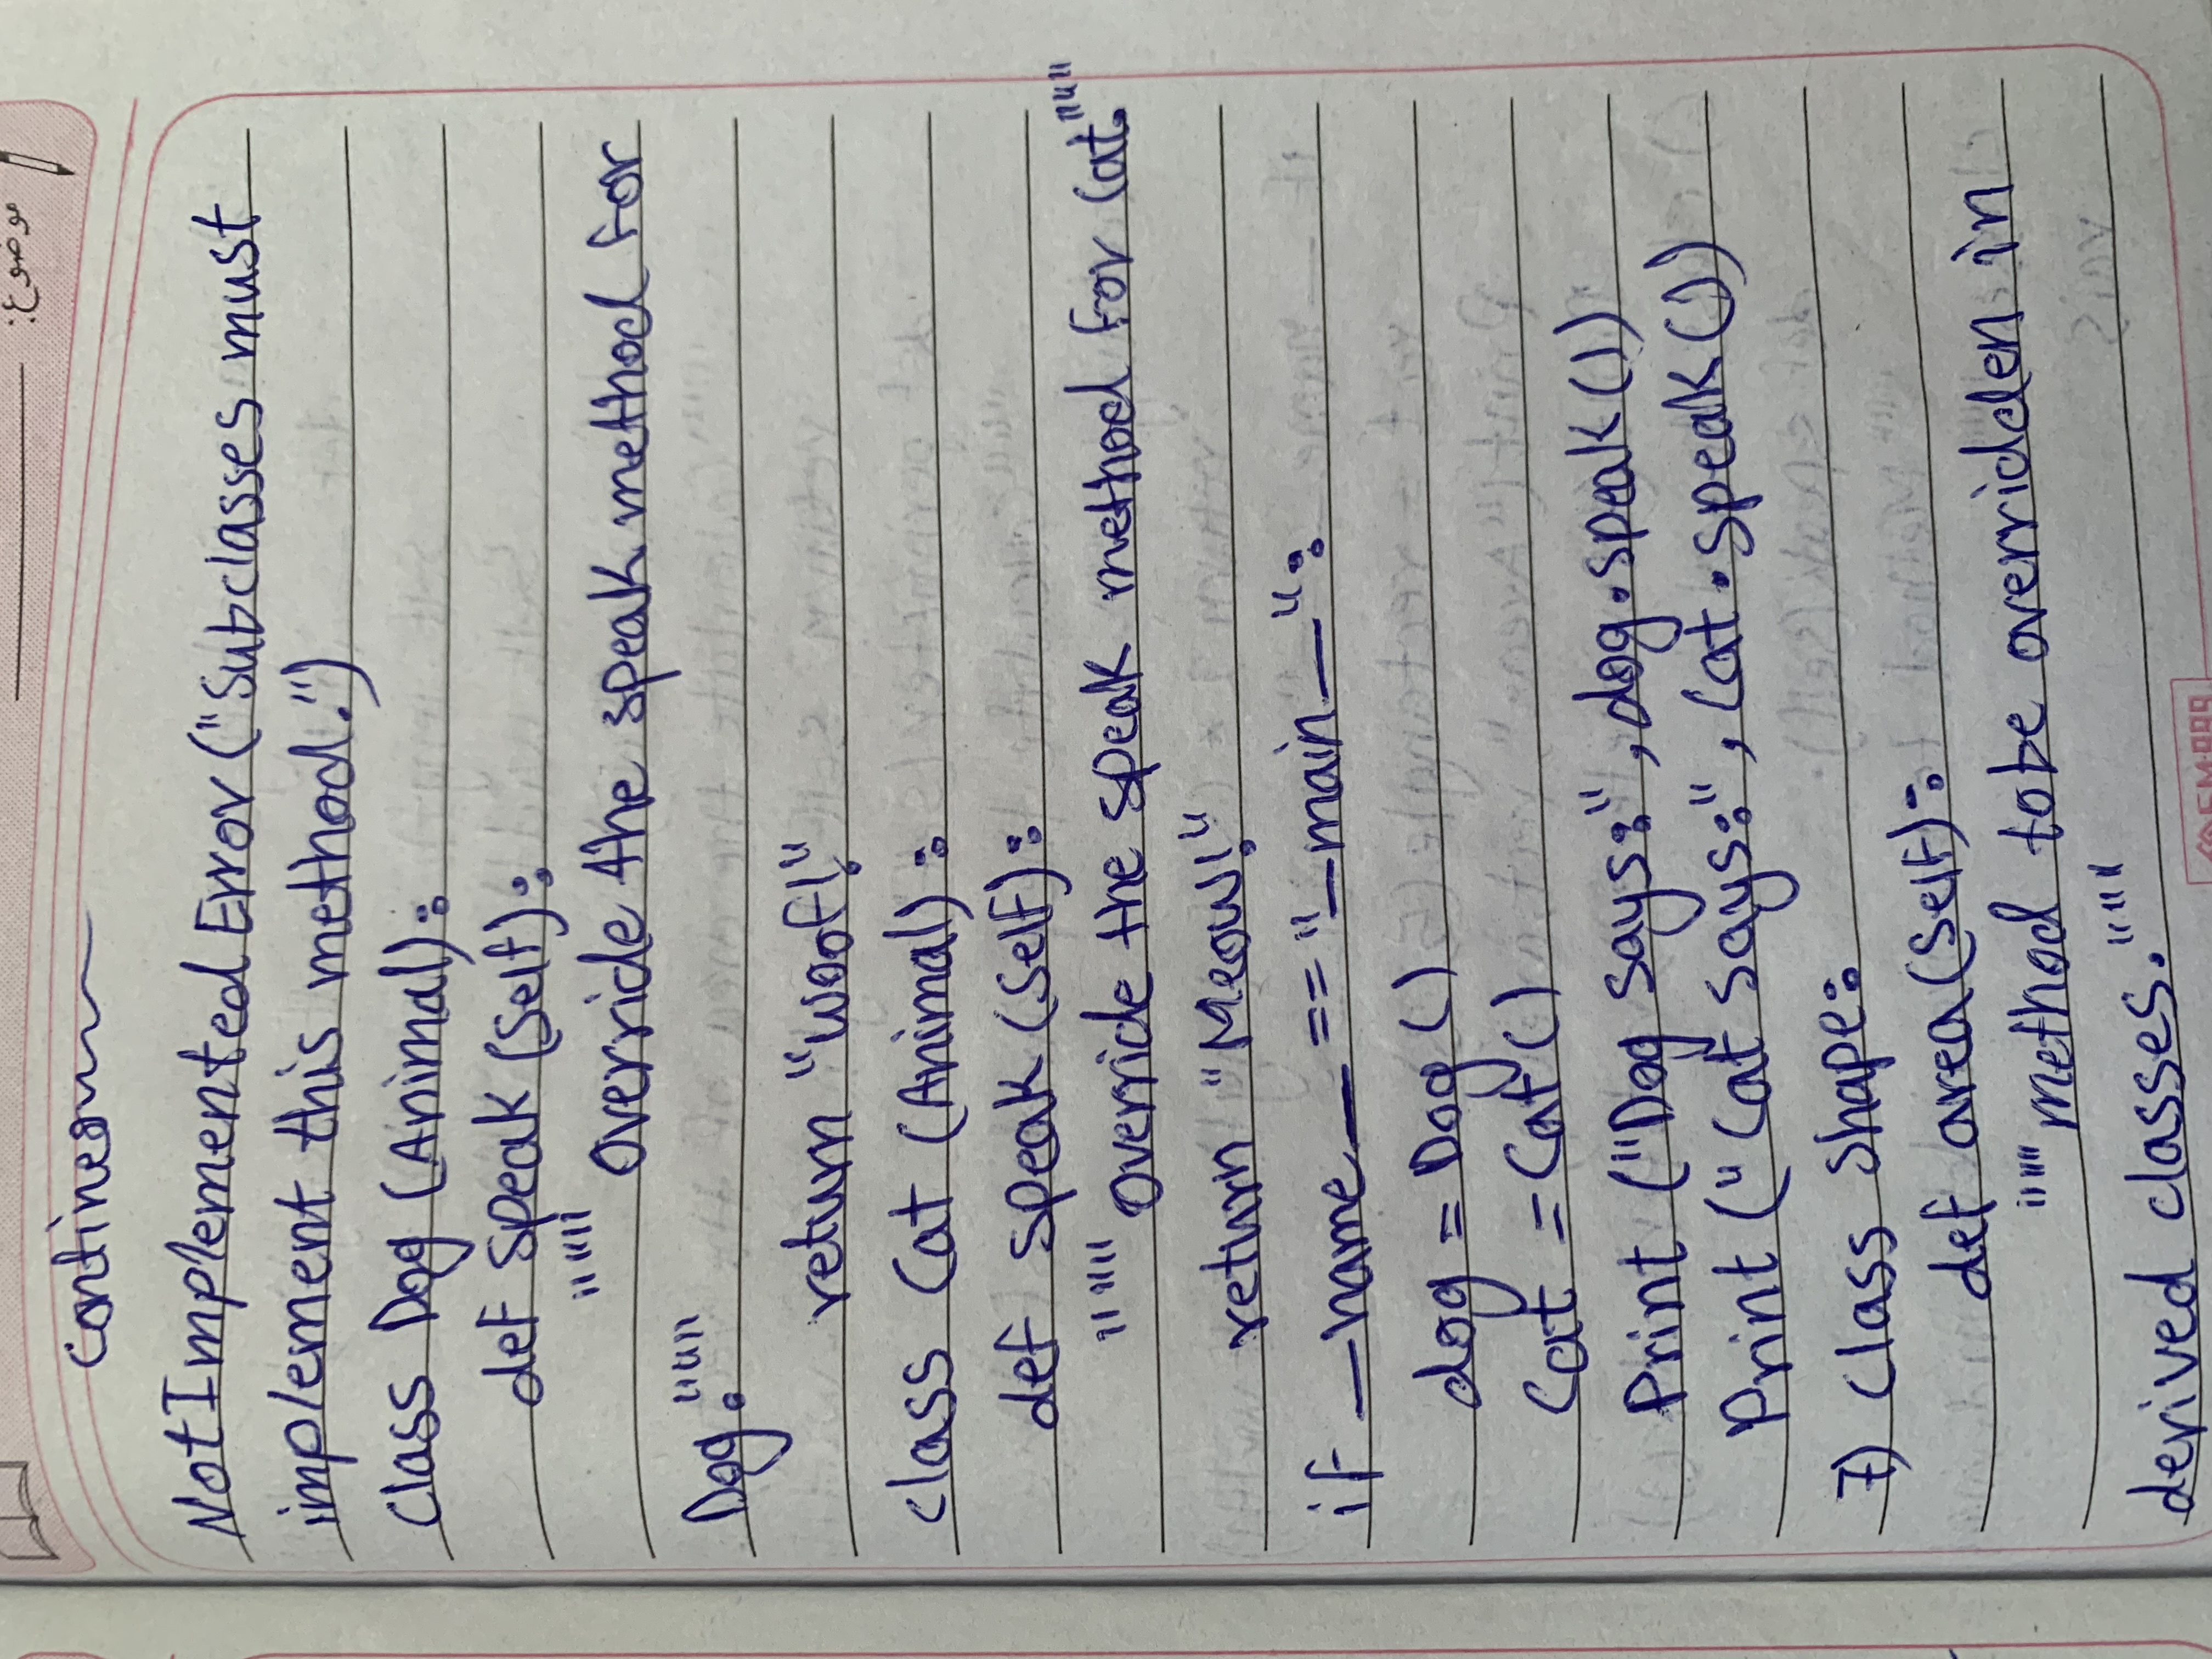 موضوع:
contines
NotImplementedError ("Subclasses must
implement this method.")
class Dog (Animal):
def speak (Self):
""" override the speak method for
Dog."""
return "woof!"
class Cat (Animal):
def speak (Self):
""" override the speak method for Cat."""
return "Meow!"
if __name__ == "__main__":
dog = Dog ()
Cat = Cat ()
Print ("Dog says:", dog.speak ())
Print ("Cat says:", Cat.speak ())
7) class shape:
def area (Self):
""" method tobe overridden in
derived classes."""